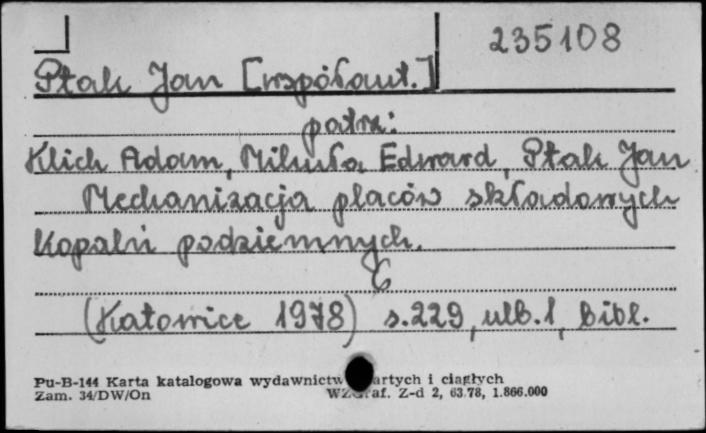 235108
Ptak Jan [współaut.]
patrz:
Klich Adam, Mikuła Edward, Ptak Jan
Mechanizacja placów składowych
kopalń podziemnych.
(Katowice 1978) s.229, ulb.1, bibl.
Pu-B-144 Karta katalogowa wydawnictw artych i ciągłych
Zam. 34/DW/On WZGraf. Z-d 2, 63.78, 1.866.000